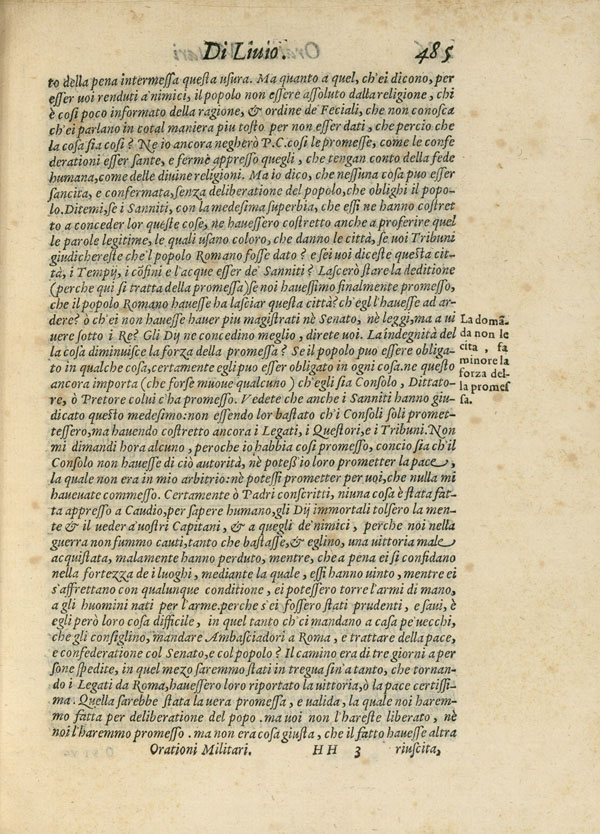 Di Liuio. 485
to della pena intermessa questa usura. Ma quanto a quel, ch'ei dicono, per
esser uoi renduti a'nimici, il popolo non essere assoluto dalla religione, chi
è cosi poco informato della ragione, & ordine de' Feciali, che non conosca
ch'ei parlano in cotal maniera piu tosto per non esser dati, che percio che
la cosa sia cosi? Ne io ancora negherò P.C. cosi le promesse, come le confe
derationi esser sante, e ferme appresso quegli, che tengan conto della fede
humana, come delle diuine religioni. Ma io dico, che nessuna cosa puo esser
sancita, e confermata, senza deliberatione del popolo, che oblighi il popo-
lo. Ditemi, se i Sanniti, con la medesima superbia, che essi ne hanno costret
to a conceder lor queste cose, ne hauessero costretto anche a proferire quel
le parole legitime, le quali usano coloro, che danno le città, se uoi Tribuni
giudichereste che'l popolo Romano fosse dato? e sei uoi diceste questa cit-
tà, i Tempij, i cōfini e l'acque esser de' Sanniti? Lascerò stare la deditione
(perche qui si tratta della promessa) se noi hauessimo finalmente promesso,
che il popolo Romano hauesse ha lasciar questa città? ch'egl'hauesse ad ar-
dere? ò ch'ei non hauesse hauer piu magistrati nè Senato, nè leggi, ma a ui
uere sotto i Re? Gli Dij ne concedino meglio, direte uoi. La indegnità del
la cosa diminuisce la forza della promessa? Se il popolo puo essere obliga-
to in qualche cosa, certamente egli puo esser obligato in ogni cosa. ne questo
ancora importa (che forse muoue qualcuno) ch'egli sia Consolo, Dittato-
re, ò Pretore colui c'ha promesso. Vedete che anche i Sanniti hanno giu-
dicato questo medesimo: non essendo lor bastato ch'i Consoli soli promet-
tessero, ma hauendo costretto ancora i Legati, i Questori, e i Tribuni. Non
mi dimandi hora alcuno, peroche io habbia cosi promesso, concio sia ch'il
Consolo non hauesse di ciò autorità, nè potess' io loro prometter la pace,
la quale non era in mio arbitrio: nè potessi prometter per uoi, che nulla mi
haueuate commesso. Certamente ò Padri conscritti, niuna cosa è stata fat-
ta appresso a Caudio, per sapere humano, gli Dij immortali tolsero la men-
te & il ueder a'uostri Capitani, & a quegli de'nimici, perche noi nella
guerra non fummo cauti, tanto che bastasse, & eglino, una uittoria male
acquistata, malamente hanno perduto, mentre, che a pena ei si confidano
nella fortezza de i luoghi, mediante la quale, essi hanno uinto, mentre ei
s'affrettano con qualunque conditione, ei potessero torre l'armi di mano,
a gli huomini nati per l'arme. perche s'ei fossero stati prudenti, e saui, è
egli però loro cosa difficile, in quel tanto ch'ei mandano a casa pe'uecchi,
che gli consiglino, mandare Ambasciadori a Roma, e trattare della pace,
e confederatione col Senato, e col popolo? Il camino era di tre giorni a per
sone spedite, in quel mezo saremmo stati in tregua sin'a tanto, che tornan-
do i Legati da Roma, hauessero loro riportato la uittoria, ò la pace certissi-
ma. Quella sarebbe stata la uera promessa, e ualida, la quale noi harem-
mo fatta per deliberatione del popo. ma uoi non l'hareste liberato, nè
noi l'haremmo promesso. ma non era cosa giusta, che il fatto hauesse altra
Orationi Militari. HH 3 riuscita,
La domā-
da non le
cita, fa
minore la
forza del-
la promes
sa.